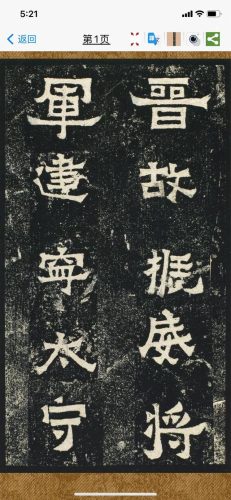 5:21
返回
第1页
晉故振威将
軍建寧太守